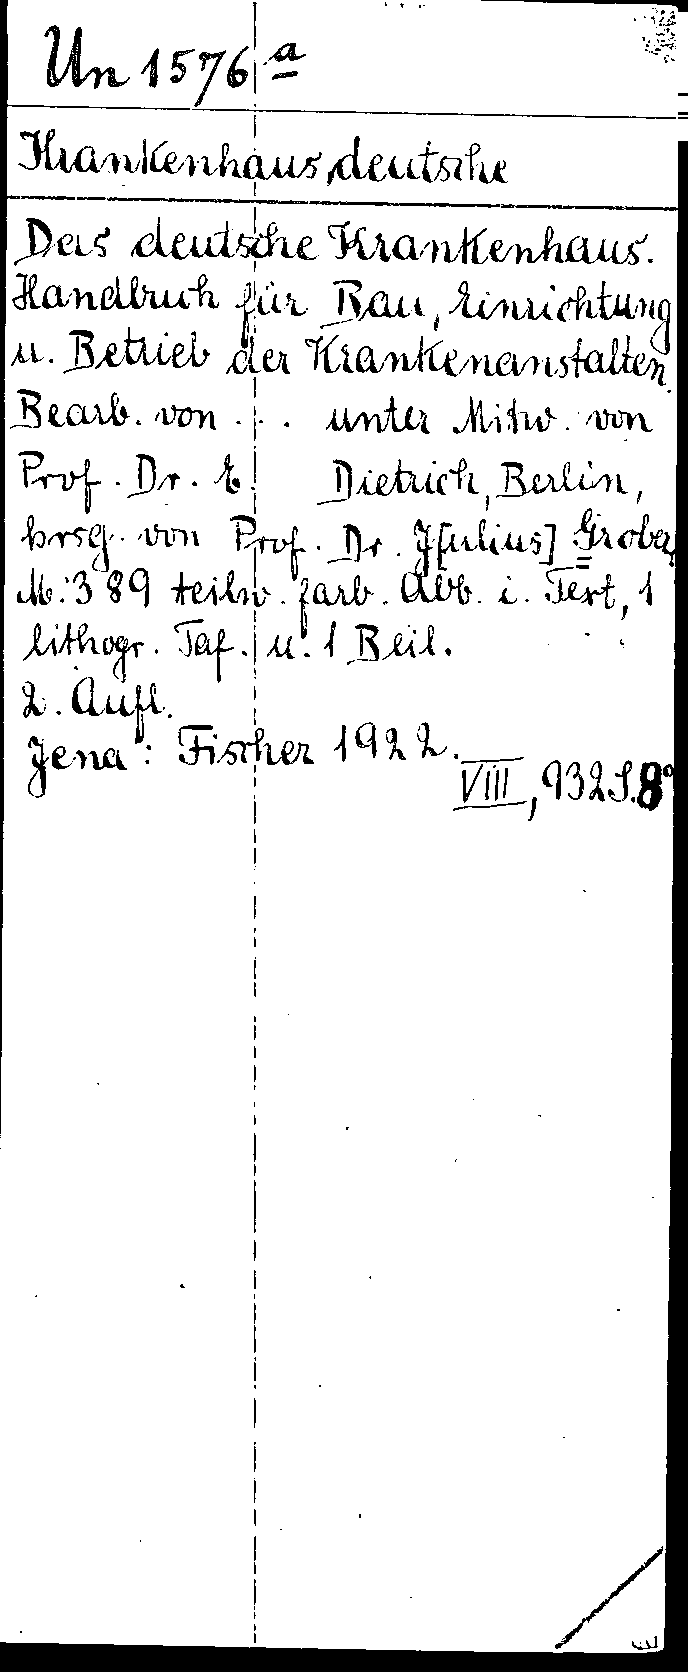 Un 1576 a
Krankenhaus, deutsche
Das deutsche Krankenhaus.
Handbuch für Bau, Einrichtung
u. Betrieb der Krankenanstalten.
Bearb. von ... unter Mitw. von
Prof. Dr. E. Dietrich, Berlin,
hrsg. von Prof. Dr. J[ulius] Grober,
M. 389 teilw. farb. Abb. i. Text, 1
lithogr. Taf. u. 1 Beil.
2. Aufl.
Jena: Fischer 1922.
VIII, 932 S. 8°